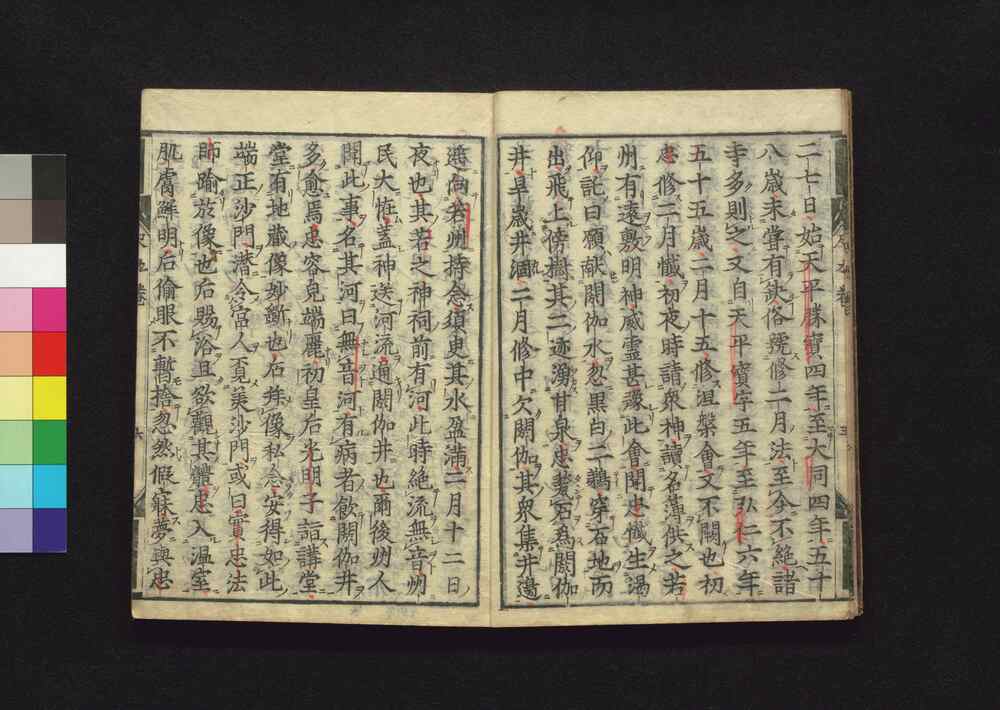 二七日始天平勝寶四年至大同四年五十
八歳未嘗有缺俗號修二月法至今不絶諸
寺多則之又自天平寳字五年至弘仁六年
五十五歳二月十五修涅槃會又不闕也初
忠修二月懺初夜時請衆神讀名薄供之若
州有遠敷明神威靈甚豫此會聞忠懺生渇
仰託曰願献閼伽水忽黒白二鸕穿石地而
出飛上傍樹其二迹湧甘泉忠甃石爲閼伽
井旱歳井涸二月修中欠閼伽其衆集井邉
遥向若州持念須臾其水盈満二月十二日
夜也其若之神祠前有河此時絶流無音州
民大恠盖神送河流通閼伽井也爾後州人
聞此事名其河曰無音河有病者飲閼伽井
多愈焉忠容皃端麗初皇后光明子詣講堂
堂有地蔵像妙斵也后拜像私念安得如此
端正沙門潜令宮人覓美沙門或曰實忠法
師踰於像也后賜浴且欲觀其體忠入温室
肌膚鮮明后偸眼不暫捨忽然假寐夢與忠